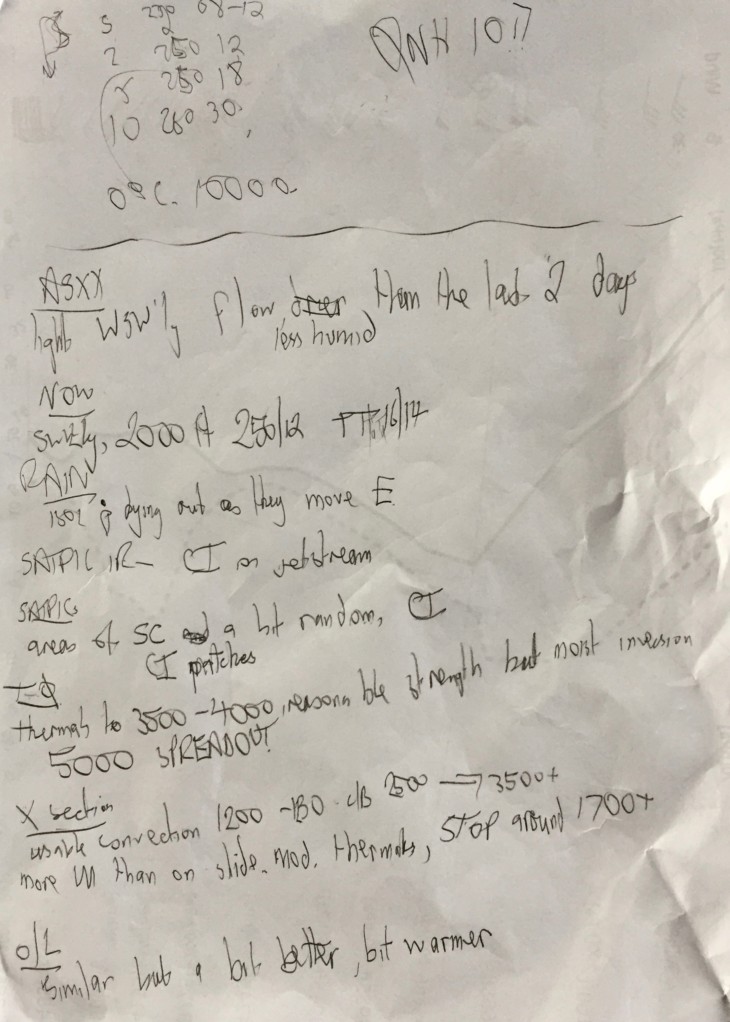 5 08-12
2 250 12
5 250 18
10 260 30
QNH 1017
0°C. 10000
ASXX
light WSW'ly flow drier than the last 2 days
less humid
NOW
SWly, 2000 ft 250/12 TT 16/14
RAIN
dying out as they move E
SATPIC IR - CI on jetstream
SATPIC
areas of SC a bit random, CI
CI patches
TΦ
thermals to 3500-4000, reasonable strength but moist inversion
5000 SPREADOUT!
X section
usable convection 1200 - c/B 2500 → 3500+
more than on slide. mod. thermals, STOP around 1700+
O/L
similar but a bit better, bit warmer